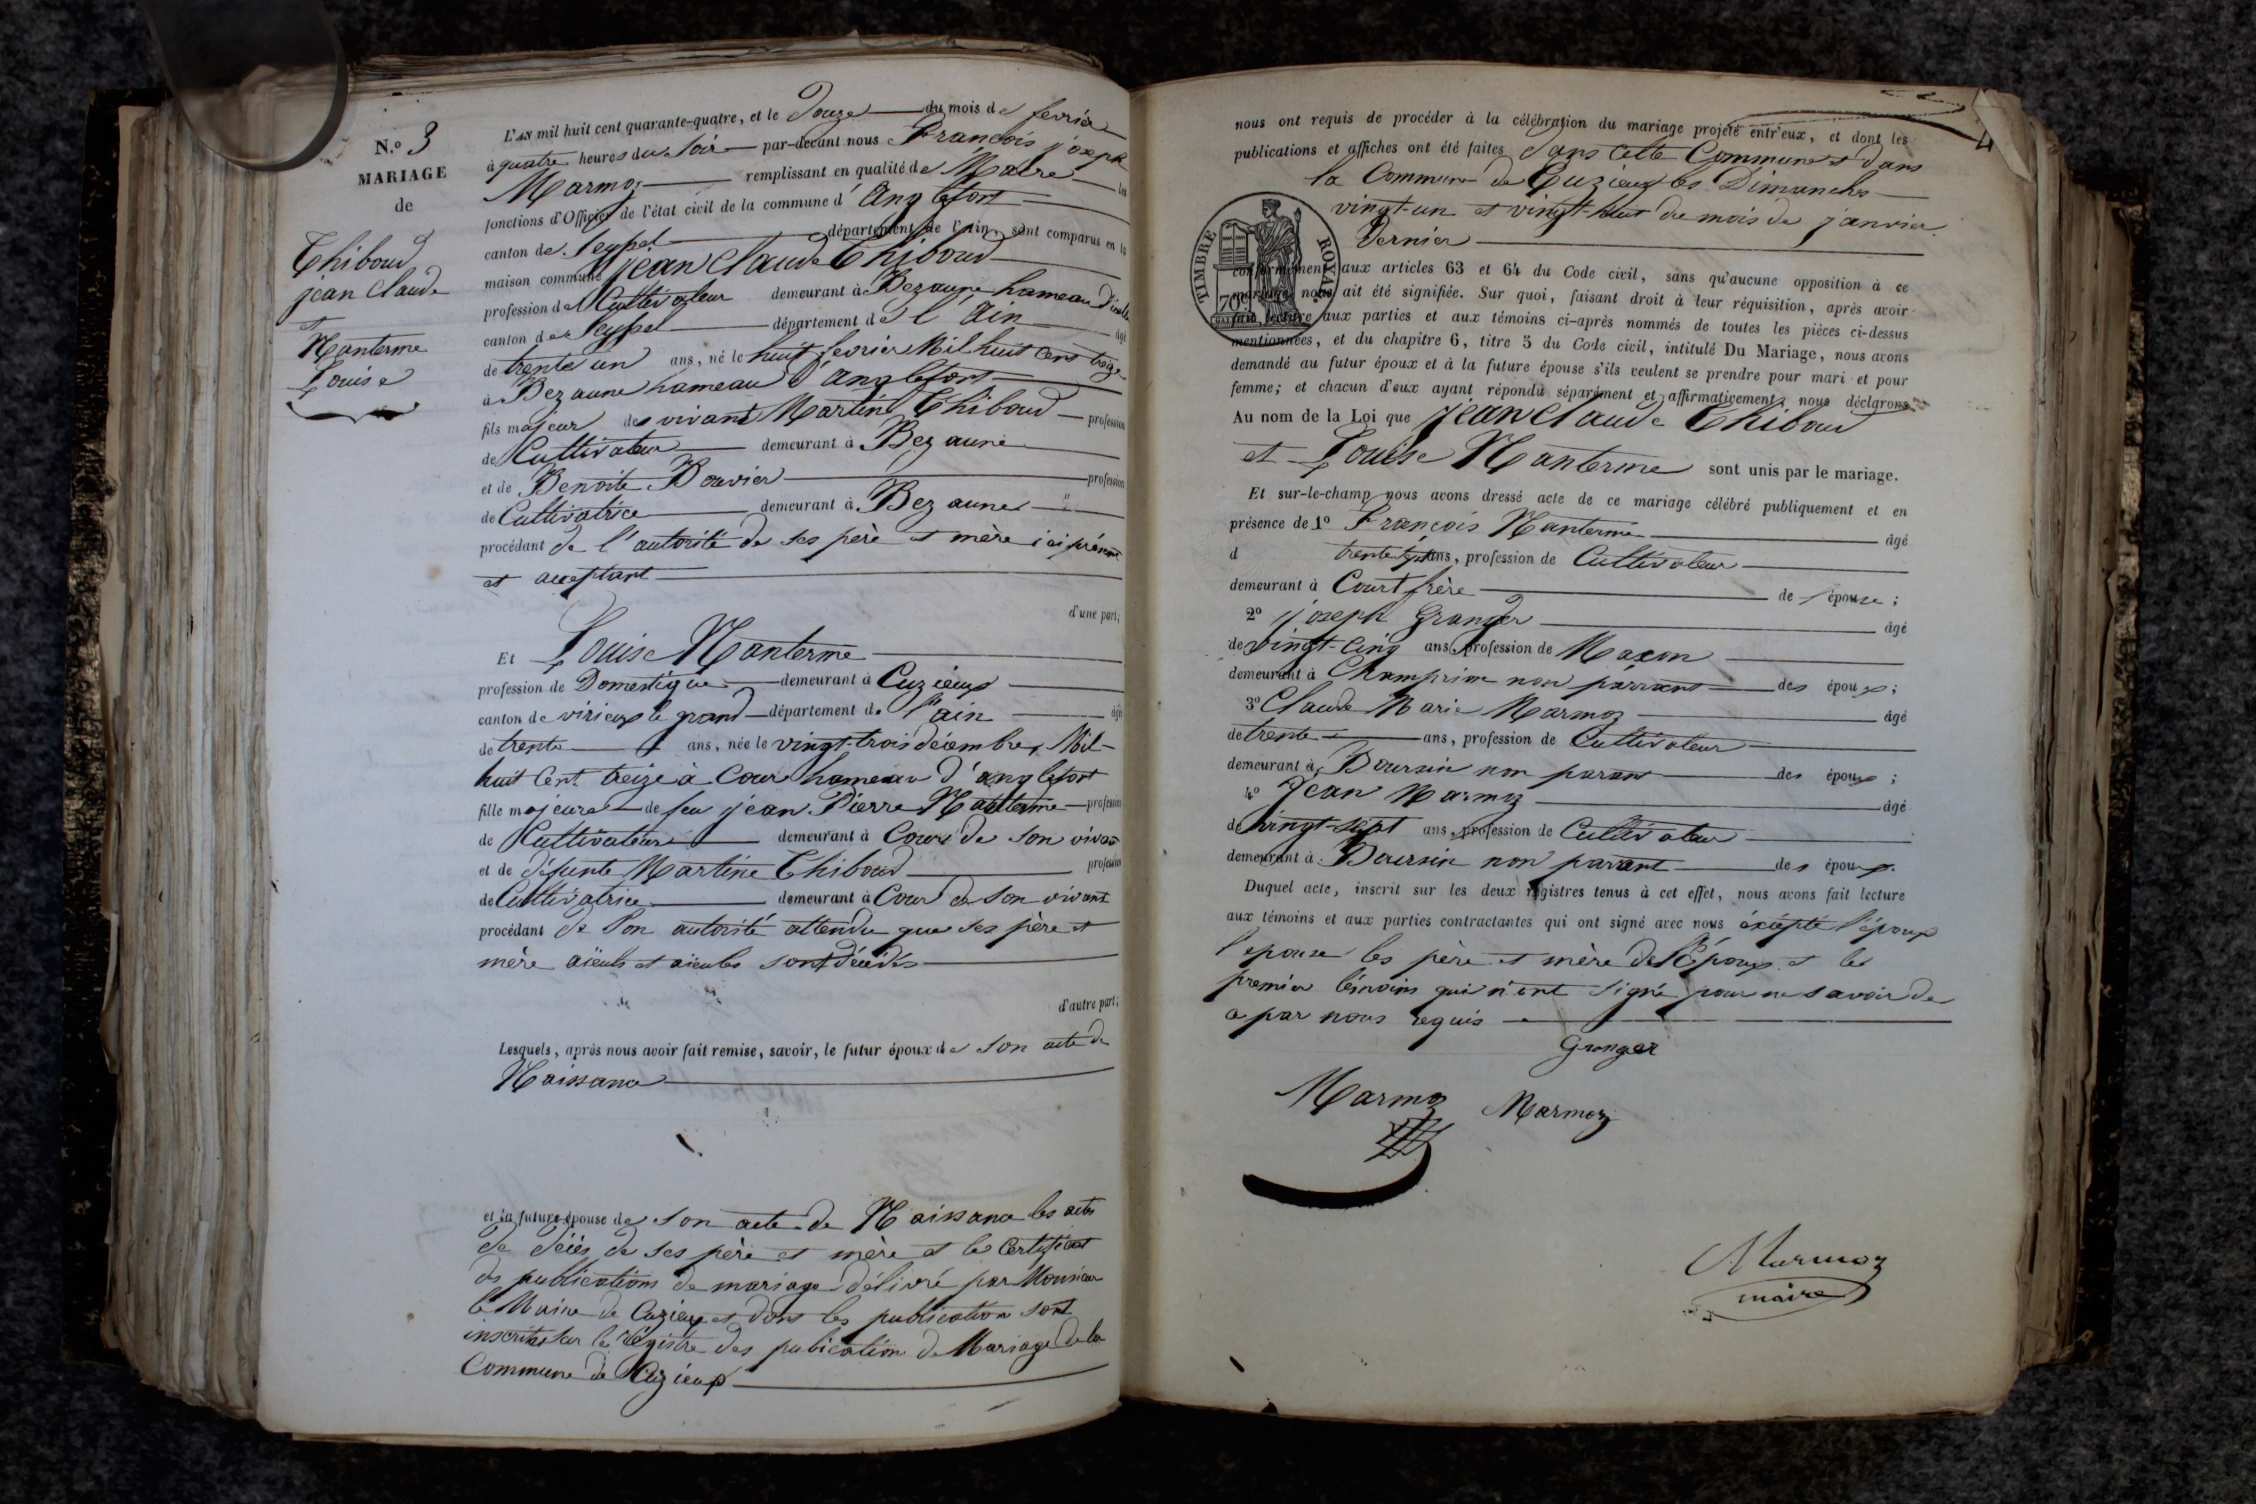 N.o 3
MARIAGE
de
Thiboud
jean Claude
et
Nanterme
Louise
L'AN mil huit cent quarante-quatre, et le Douze du mois de fevrier
à quatre heures du Soir par-devant nous François joseph
Marmoz remplissant en qualité de Maire les
fonctions d'Officier de l'état civil de la commune d'anglefort
canton de Seyssel département de l'Ain, sont comparus en la
maison commune jean Claude Thiboud
profession de Cultivateur demeurant à Bezaune hameau
canton de Seyssel département de l'Ain âgé
de trente un ans, né le huit fevrier Mil huit Cent treize
à Bezaune hameau d'anglefort
fils majeur des vivant Martin Thiboud profession
de Cultivateur demeurant à Bezaune
et de Benoite Bouvier profession
de Cultivatrice demeurant à Bezaune
procédant de l'autorité de ses père et mère ici présent
et acceptant
d'une part;
Et Louise Nanterme
profession de Domestique demeurant à Cuzieux
canton de virieux le grand département de l'ain âgé
de trente ans, née le vingt-trois décembre Mil-
huit Cent treize à Cour hameau d'anglefort
fille majeure de feu jean Pierre Nanterme profession
de Cultivateur demeurant à Cour de son vivant
et de défunte Martine Thiboud profession
de Cultivatrice demeurant à Cour de son vivant
procédant de Son autorité attendu que ses père et
mère aïeuls et aïeules sont décédés
d'autre part;
Lesquels, après nous avoir fait remise, savoir, le futur époux de son acte de
Naissance
et la future épouse de son acte de Naissance les actes
de décès de ses père et mère et le Certificat
des publications de mariage délivré par Monsieur
le Maire de Cuzieux et dont les publication sont
inscrites sur le régistre des publication de Mariage de la
Commune de Cuzieux
4
nous ont requis de procéder à la célébration du mariage projeté entr'eux, et dont les
publications et affiches ont été faites dans cette Commune et dans
la Commune de Cuzieux les Dimanches
vingt-un et vingt-huit du mois de janvier
dernier
TIMBRE ROYAL
70c
conformément aux articles 63 et 64 du Code civil, sans qu'aucune opposition à ce
mariage nous ait été signifiée. Sur quoi, faisant droit à leur réquisition, après avoir
fait lecture aux parties et aux témoins ci-après nommés de toutes les pièces ci-dessus
mentionnées, et du chapitre 6, titre 5 du Code civil, intitulé Du Mariage, nous avons
demandé au futur époux et à la future épouse s'ils veulent se prendre pour mari et pour
femme; et chacun d'eux ayant répondu séparément et affirmativement, nous déclarons
Au nom de la Loi que jean Claude Thiboud
et Louise Nanterme sont unis par le mariage.
Et sur-le-champ nous avons dressé acte de ce mariage célébré publiquement et en
présence de 1o François Nanterme âgé
d trente ans, profession de Cultivateur
demeurant à Court frère de l'épouse;
2o joseph Granger âgé
de vingt-cinq ans, profession de Maxon
demeurant à Champrion non parrant des époux;
3o Claude Marie Marmoz âgé
de trente ans, profession de Cultivateur
demeurant à Boursin non parant des époux;
4o Jean Marmoz âgé
de vingt-sept ans, profession de Cultivateur
demeurant à Boursin non parant des époux.
Duquel acte, inscrit sur les deux registres tenus à cet effet, nous avons fait lecture
aux témoins et aux parties contractantes qui ont signé avec nous excepté l'époux
l'epouse les père et mère de l'époux et le
premier témoins qui n'ont signé pour ne savoir de
ce par nous requis
Granger
Marmoz Marmoz
Marmoz
maire